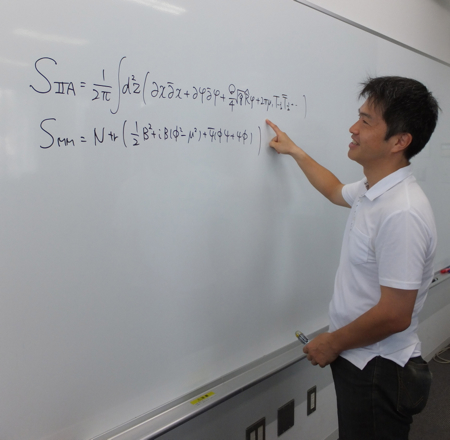 S_{IIA} = \frac{1}{2π} ∫ d²z ( ∂x \bar{∂}x + ∂φ \bar{∂}φ + \frac{Q}{4} \sqrt{\hat{g}} \hat{R} φ + 2πμ, T_{-\frac{1}{2}} \bar{T}_{\frac{1}{2}} ... )
S_{MM} = N tr ( \frac{1}{2} B² + iB(φ² - μ²) + \bar{ψ}(φψ + ψφ) )